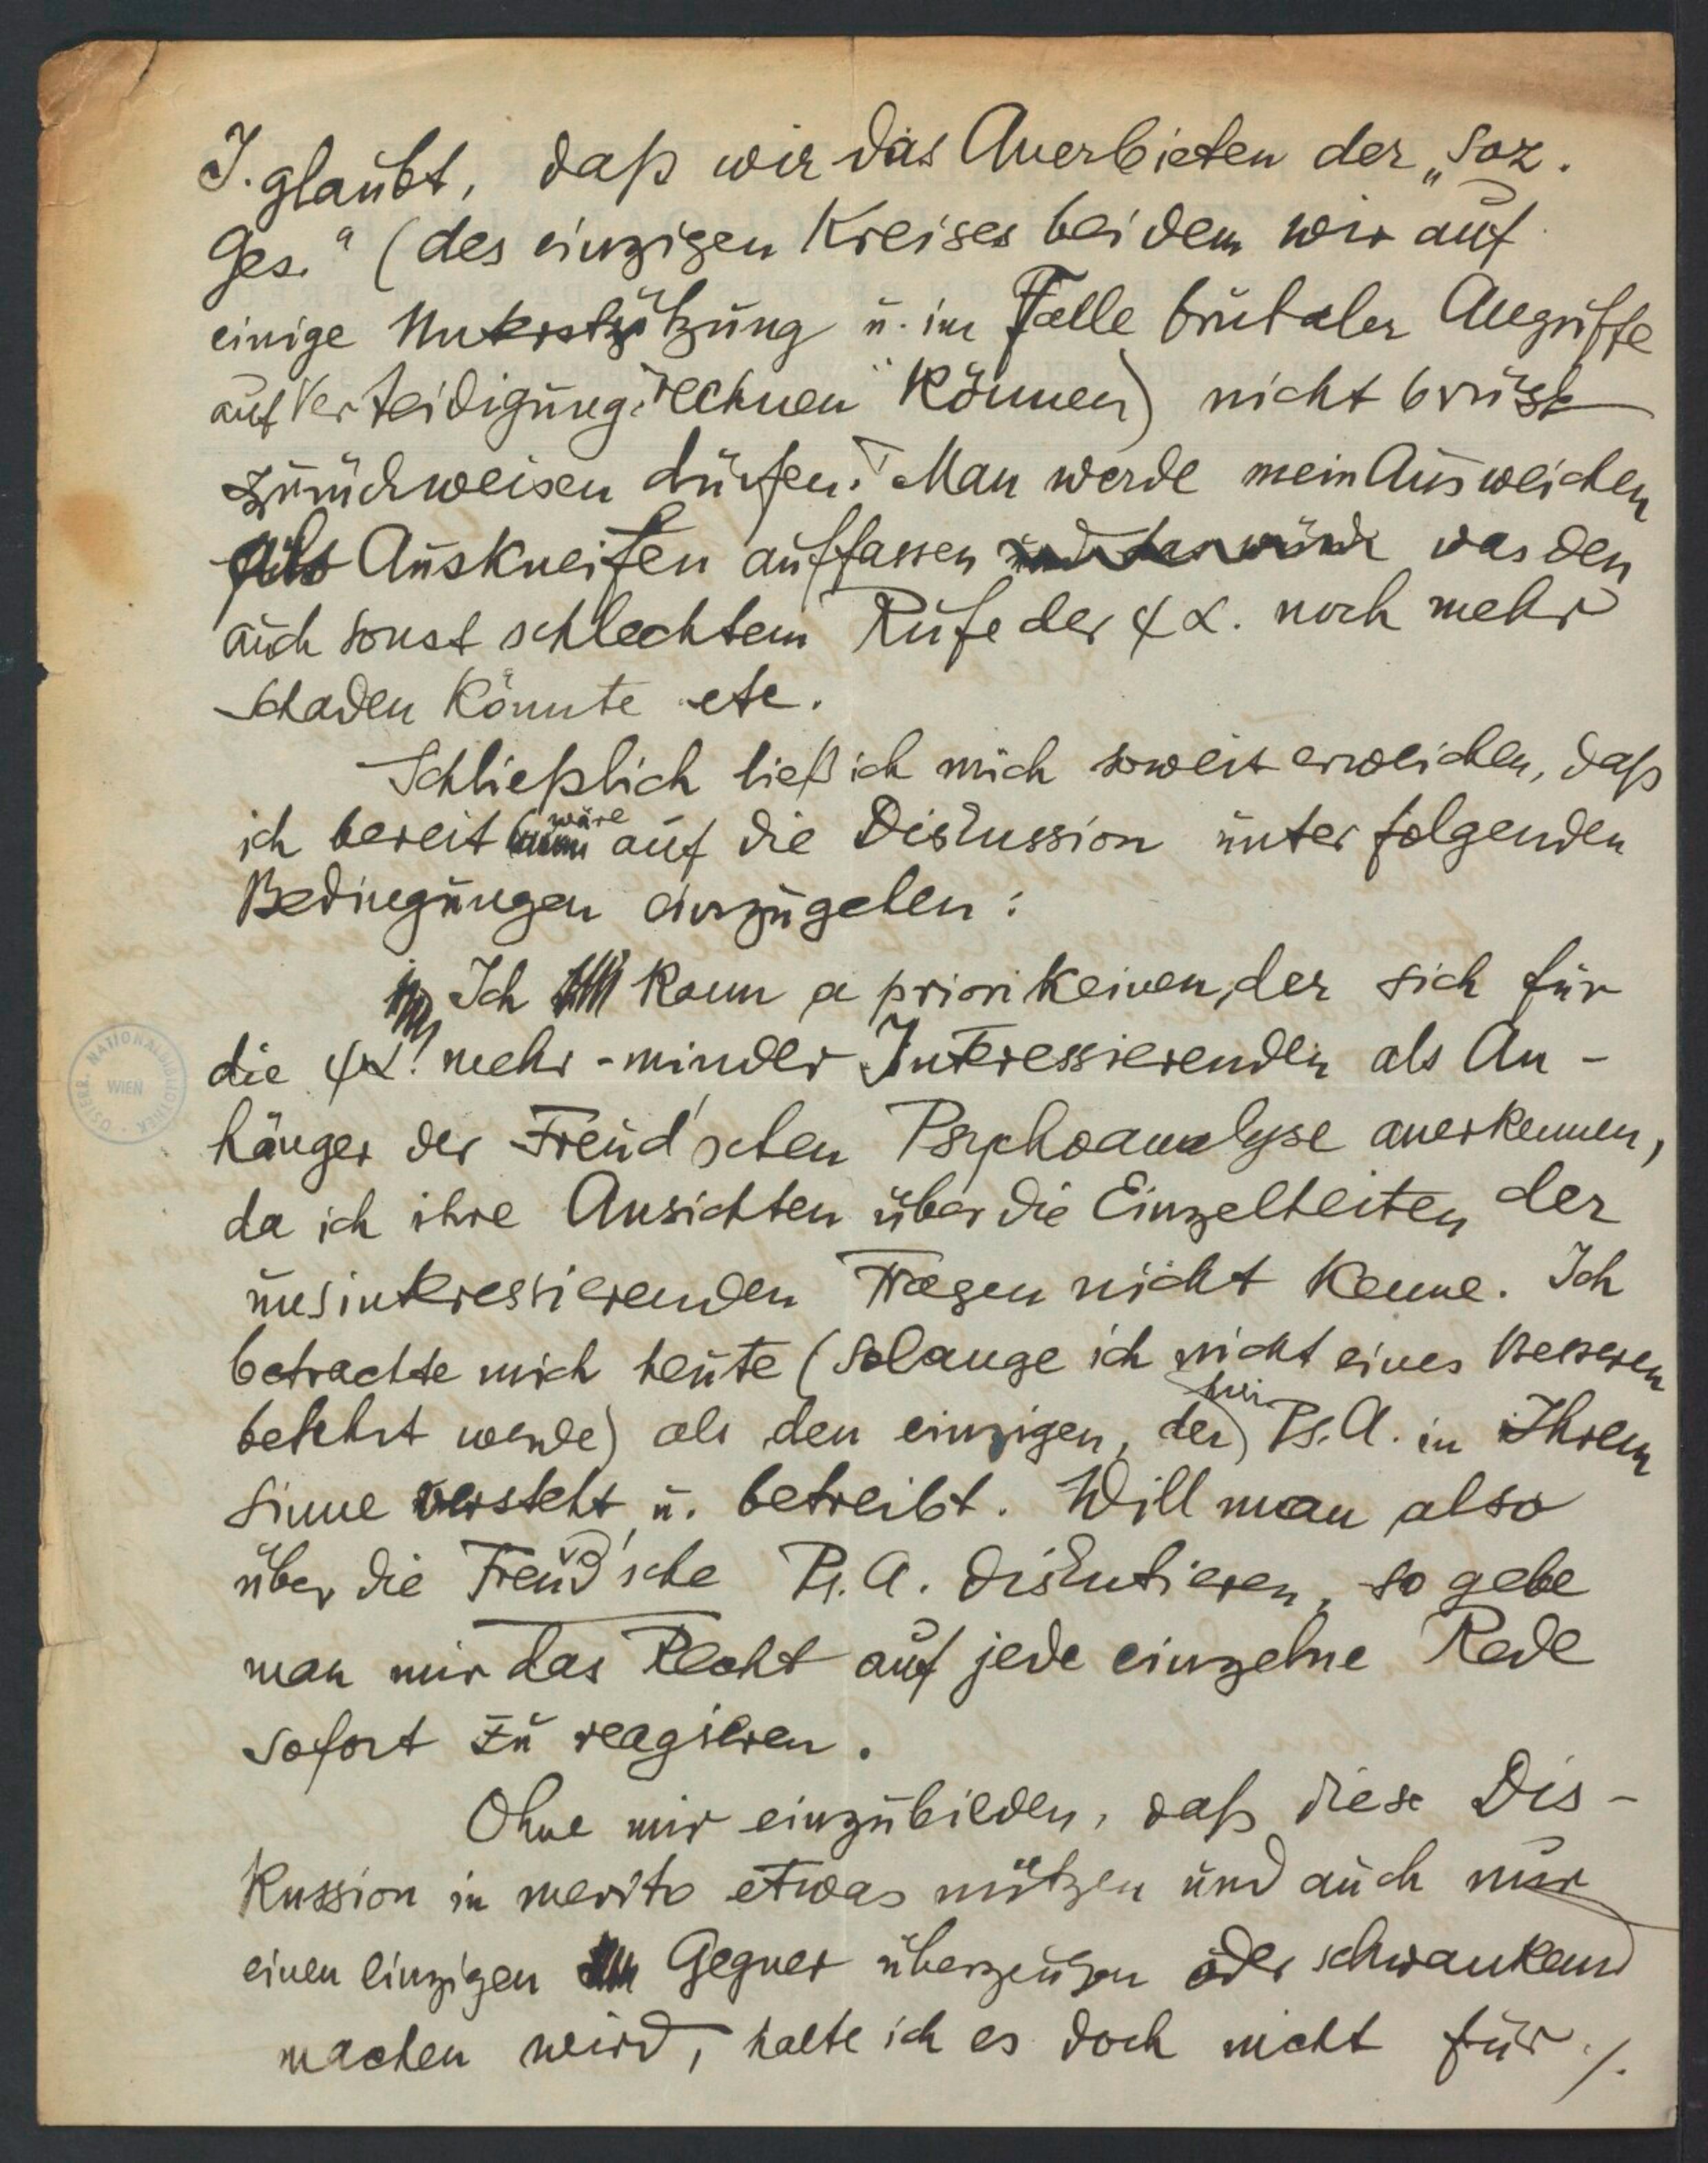 J. glaubt, daß wir das Anerbieten der „Soz.
Ges.“ (des einzigen Kreises bei dem wir auf
einige Unterstützung u. im Falle brutaler Angriffe
auf Verteidigung „rechnen“ können) nicht brüsk
zurückweisen dürfen. Man werde mein Ausweichen
als Auskneifen auffassen und das würde was den
auch sonst schlechtem Rufe der ψα. noch mehr
schaden könnte etc.
Schließlich ließ ich mich soweit erweichen, daß
ich bereit wäre auf die Diskussion unter folgenden
Bedingungen einzugehen:
Ich kann a priori keinen, der sich für
die ψα. mehr-minder Interessierenden als An-
hänger der Freud'schen Psychoanalyse anerkennen,
da ich ihre Ansichten über die Einzelheiten der
uns interessierenden Fragen nicht kenne. Ich
betrachte mich heute (solange ich nicht eines Besseren
belehrt werde) als den einzigen, der hier Ps. A. in Ihrem
Sinne versteht u. betreibt. Will man also
über die Freud'sche Ps. A. diskutieren, so gebe
man mir das Recht auf jede einzelne Rede
sofort zu reagieren.
Ohne mir einzubilden, daß diese Dis-
kussion in merito etwas nützen und auch nur
einen einzigen Gegner überzeugen oder schwankend
machen wird, halte ich es doch nicht für ./.
ÖSTERR. NATIONALBIBLIOTHEK
WIEN